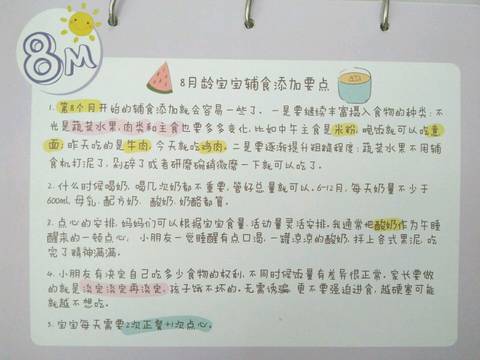 8M
8月龄宝宝辅食添加要点
1. 第8个月开始的辅食添加就会容易一些了. 一是要继续丰富摄入食物的种类: 不
光是蔬菜水果, 肉类和主食也要多多变化, 比如中午主食是米粉, 晚饭就可以吃煮
面; 昨天吃的是牛肉, 今天就吃鸡肉. 二是要逐渐提升粗糙程度: 蔬菜水果不用辅
食机打泥了, 剁碎了或者研磨碗稍微磨一下就可以吃了.
2. 什么时候喝奶, 喝几次奶都不重要, 管好总量就可以. 6-12月, 每天奶量不少于
600ml, 母乳, 配方奶, 酸奶, 奶酪都算.
3. 点心的安排, 妈妈们可以根据宝宝食量, 活动量灵活安排, 我通常把酸奶作为午睡
醒来的一顿点心, 小朋友一觉睡醒有点口渴, 一罐凉凉的酸奶, 拌上各式果泥, 吃
完了精神满满.
4. 小朋友有决定自己吃多少食物的权利, 不同时候饭量有差异很正常, 家长要做
的就是淡定淡定再淡定, 孩子饿不坏的, 无需诱骗, 更不要强迫进食, 越硬塞可能
就越不想吃.
5. 宝宝每天需要2次正餐+1次点心.